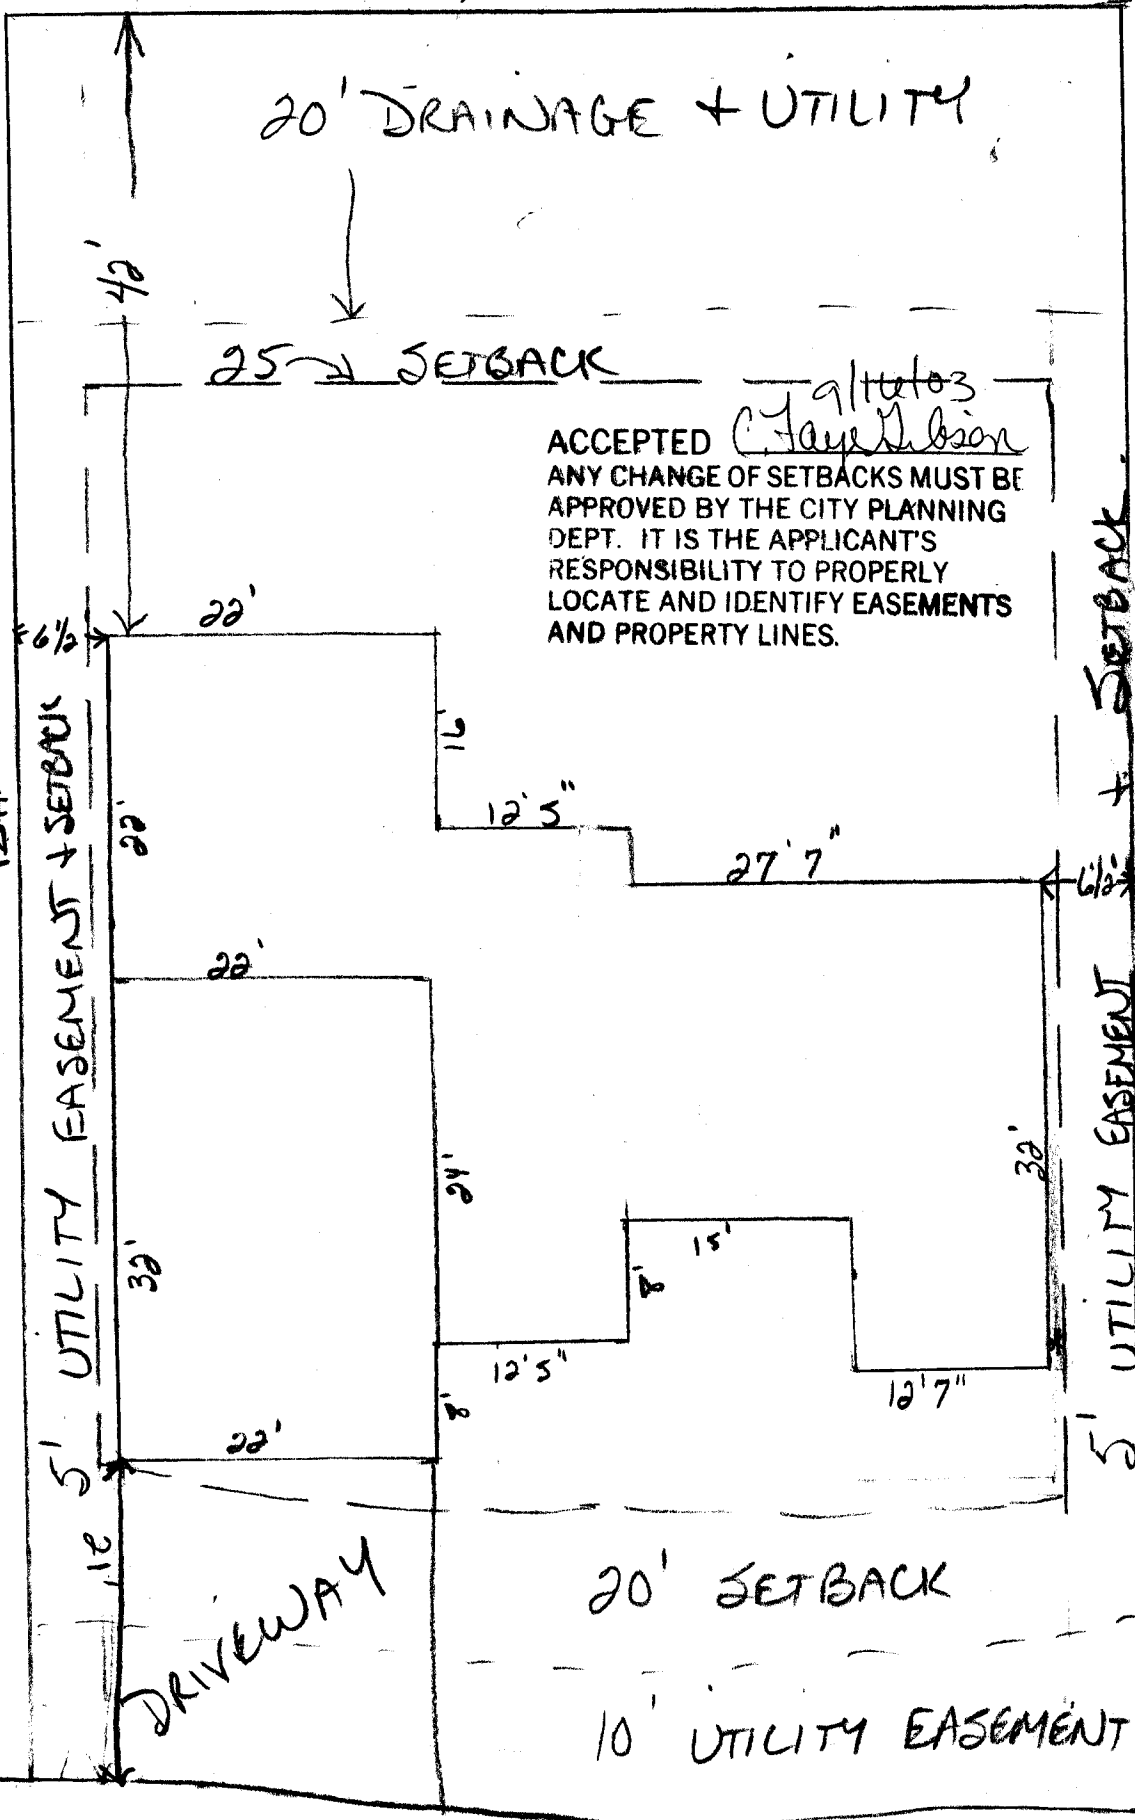 20' DRAINAGE + UTILITY
42'
25 SETBACK
9/16/03
ACCEPTED C. Faye Gibson
ANY CHANGE OF SETBACKS MUST BE
APPROVED BY THE CITY PLANNING
DEPT. IT IS THE APPLICANT'S
RESPONSIBILITY TO PROPERLY
LOCATE AND IDENTIFY EASEMENTS
AND PROPERTY LINES.
6½
22'
12'5"
27'7"
6½'
22'
22'
24'
32'
32'
15'
8'
12'5"
12'7"
8'
22'
5' UTILITY EASEMENT + SETBACK
5' UTILITY EASEMENT + SETBACK
21'
20' SETBACK
DRIVEWAY
10' UTILITY EASEMENT